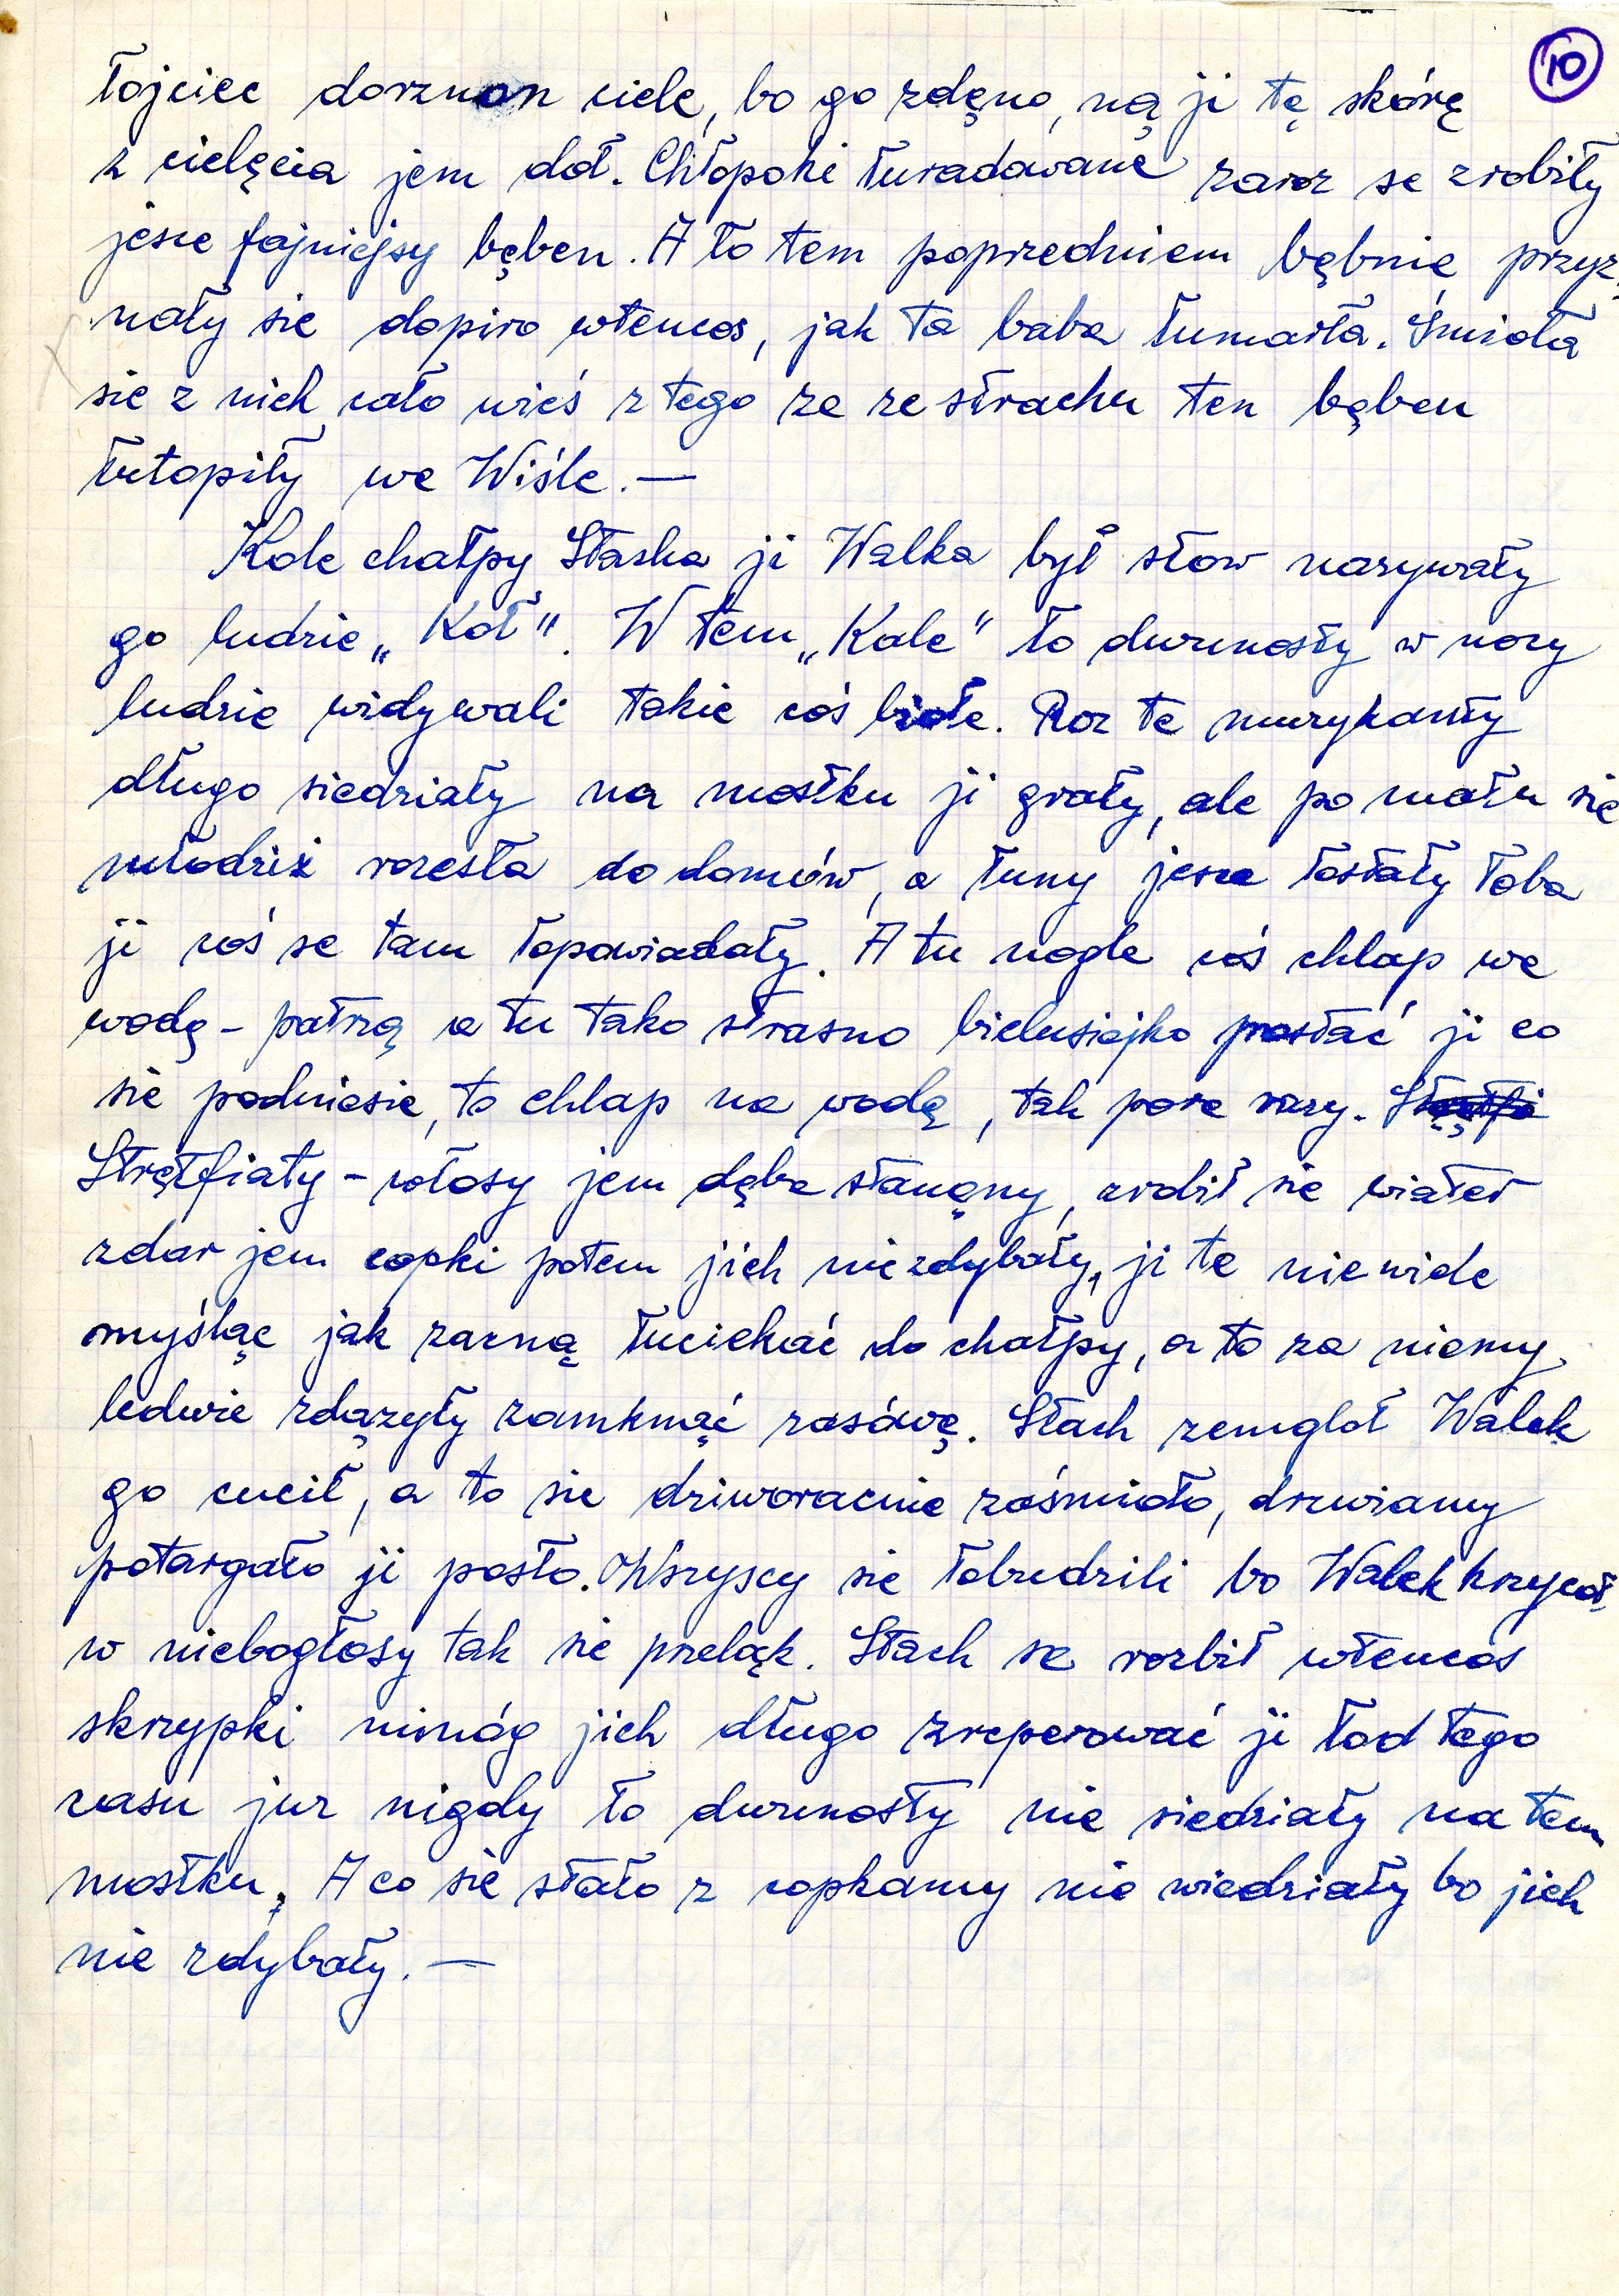 10
łojciec dorznon ciele, bo go zdęno, ną ji tę skórę
z cielęcia jem doł. Chłopoki łuradowane zaroz se zrobiły
jesce fajniejsy bęben. A ło tem poprzedniem bębnie przyz-
nały sie dopiro wtencos, jak ta baba łumarła. Śmioła
sie z nich cało wieś z tego ze ze strachu ten bęben
łutopiły we Wiśle. —
Kole chałpy Staska ji Walka był stow nazywały
go ludzie „Koł". W tem „Kole" to dwunosty w nocy
ludzie widywali takie coś biołe. Roz te muzykanty
długo siedziały na mostku ji grały, ale po mału sie
młodziż rozesła do domów, a łuny jesce łostały łoba
ji coś se tam łopowiadały. A tu nogle coś chlap we
wodę - patrzą a tu tako strasno bielusiejko postać ji co
sie podniesie, to chlap na wodę, tak pore razy.
Strętfiały - włosy jem dęba stanęny, zrobił sie wiater
zdar jem copki potem jich nie zdybały, ji te nie wiele
myśląc jak zacną łuciekać do chałpy, a to za niemy
ledwie zdązyły zamknąć zasówę. Stach zemgloł Walek
go cucił, a to sie dziworacnie zaśmioło, drzwiamy
potargało ji posło. Wszyscy sie łobudzili bo Walek krzycoł
w niebogłosy tak sie przeląk. Stach se rozbił wtencos
skrzypki nimóg jich długo zreperować ji łod tego
casu juz nigdy ło dwunosty nie siedziały na tem
mostku. A co sie stało z copkamy nie wiedziały bo jich
nie zdybały. —